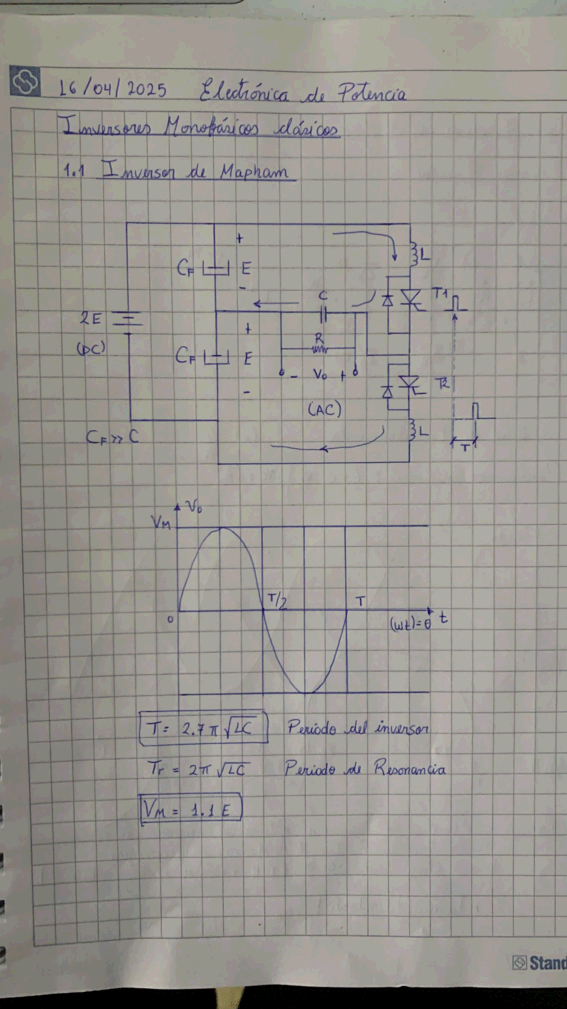 16/04/2025 Electrónica de Potencia
Inversores Monofásicos clásicos
1.1 Inversor de Mapham
+
CF E
-
L
T1
C
2E
(DC)
+
CF E
-
R
- Vo +
(AC)
T2
L
CF >> C
T
Vo
VM
0
T/2
T
(wt)=θ t
T = 2.7 π √LC Periodo del inversor
Tr = 2π √LC Periodo de Resonancia
VM = 1.1 E
Stand